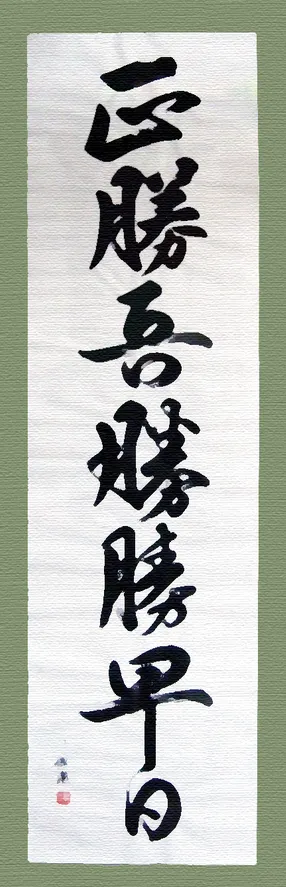 正勝吾勝勝早日